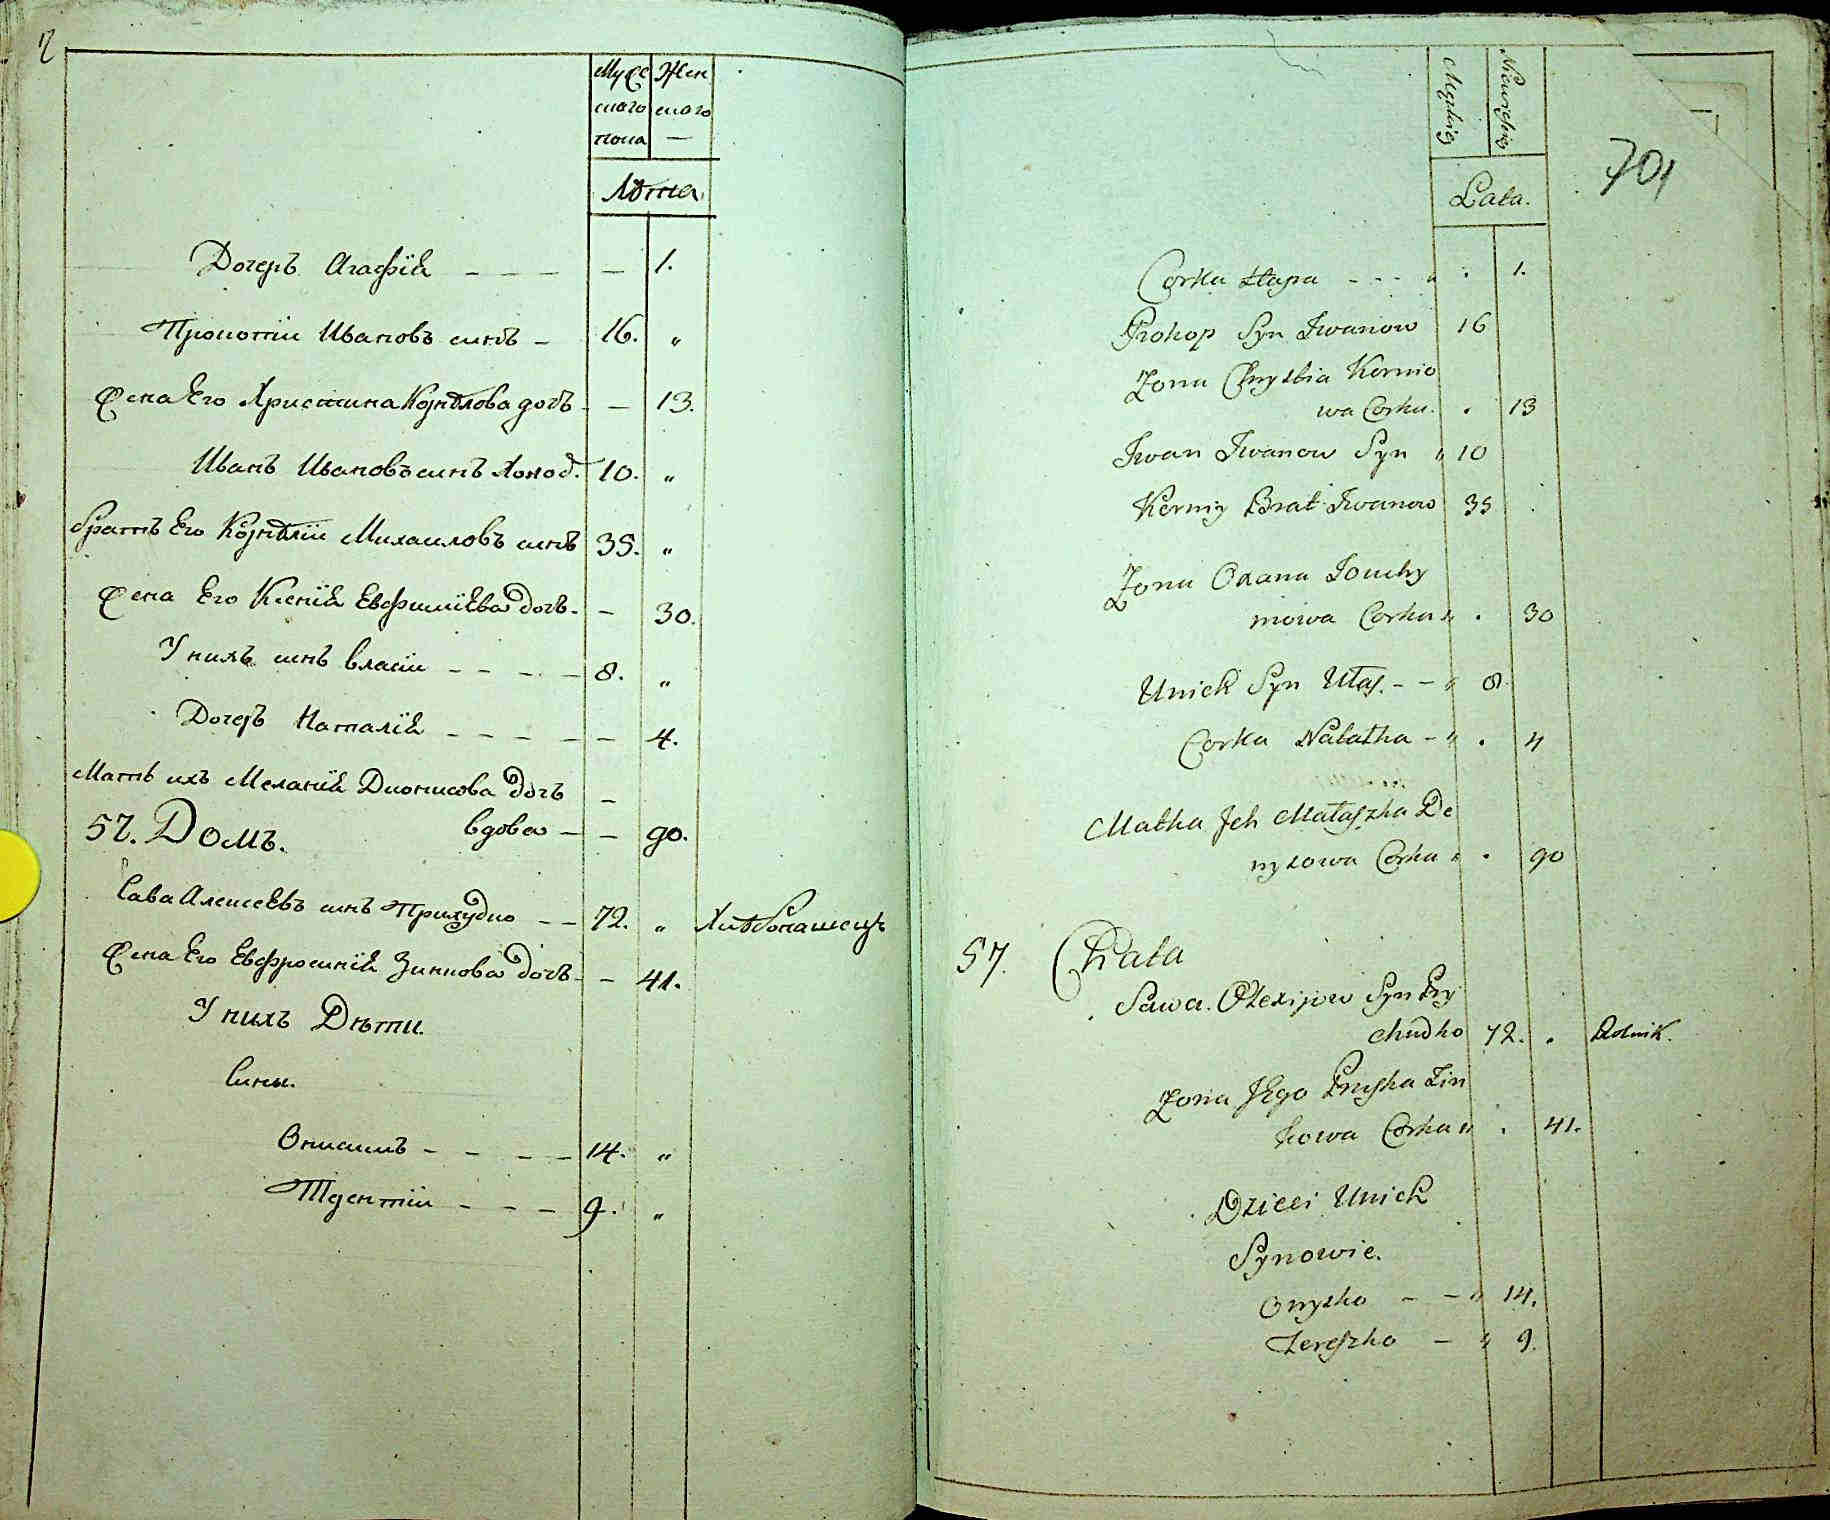 Мужс Жен
скаго скаго
пола —
Лѣта
Дочерь Агафія — — — — 1.
Прокопій Ивановъ синъ — 16. „
Жена Его Христина Корнѣлова дочь — — 13.
Иванъ Ивановъ синъ Холос. 10. „
братъ Его Корнѣлій Михаиловъ синъ 35. „
Жена Его Ксенія Евфиміева дочь — — 30.
У нихъ синъ Власій — — — — 8. „
Дочерь Наталія — — — — — 4.
Мать ихъ Меланія Дионисова дочь —
вдова — — 90.
57. Домъ.
Сава Алексеевъ синъ Прихудко — — 72. „ Хлѣбопашецъ
Жена Его Евфросинія Зинкова дочь — — 41.
У нихъ Дѣти
Сины.
Онисимъ — — — — 14. „
Терентій — — — 9. „
701
Męzkiey Niewieskiey
Lata.
Corka Hapa - - - „ . 1.
Prokop Syn Iwanow 16
Zona Chrystia Kernio
wa Corka. . 13
Iwan Iwanow Syn „ 10
Kerniy Brat Iwanow 35
Zona Oxana Jouchy
mowa Corka „ . 30
Unich Syn Ułas. - - „ 8.
Corka Natalka - „ . 4
Matka Jch Małaszka De
nysowa Corka „ . 90
57. Chata
Sawa. Olexijow Syn Pry
chudko 72. . Rolnik.
Zona Jego Pruska Zin
kowa Corka „ . 41.
Dzieci Unich
Synowie.
Onysko - - „ 14.
Tereszko - „ 9.